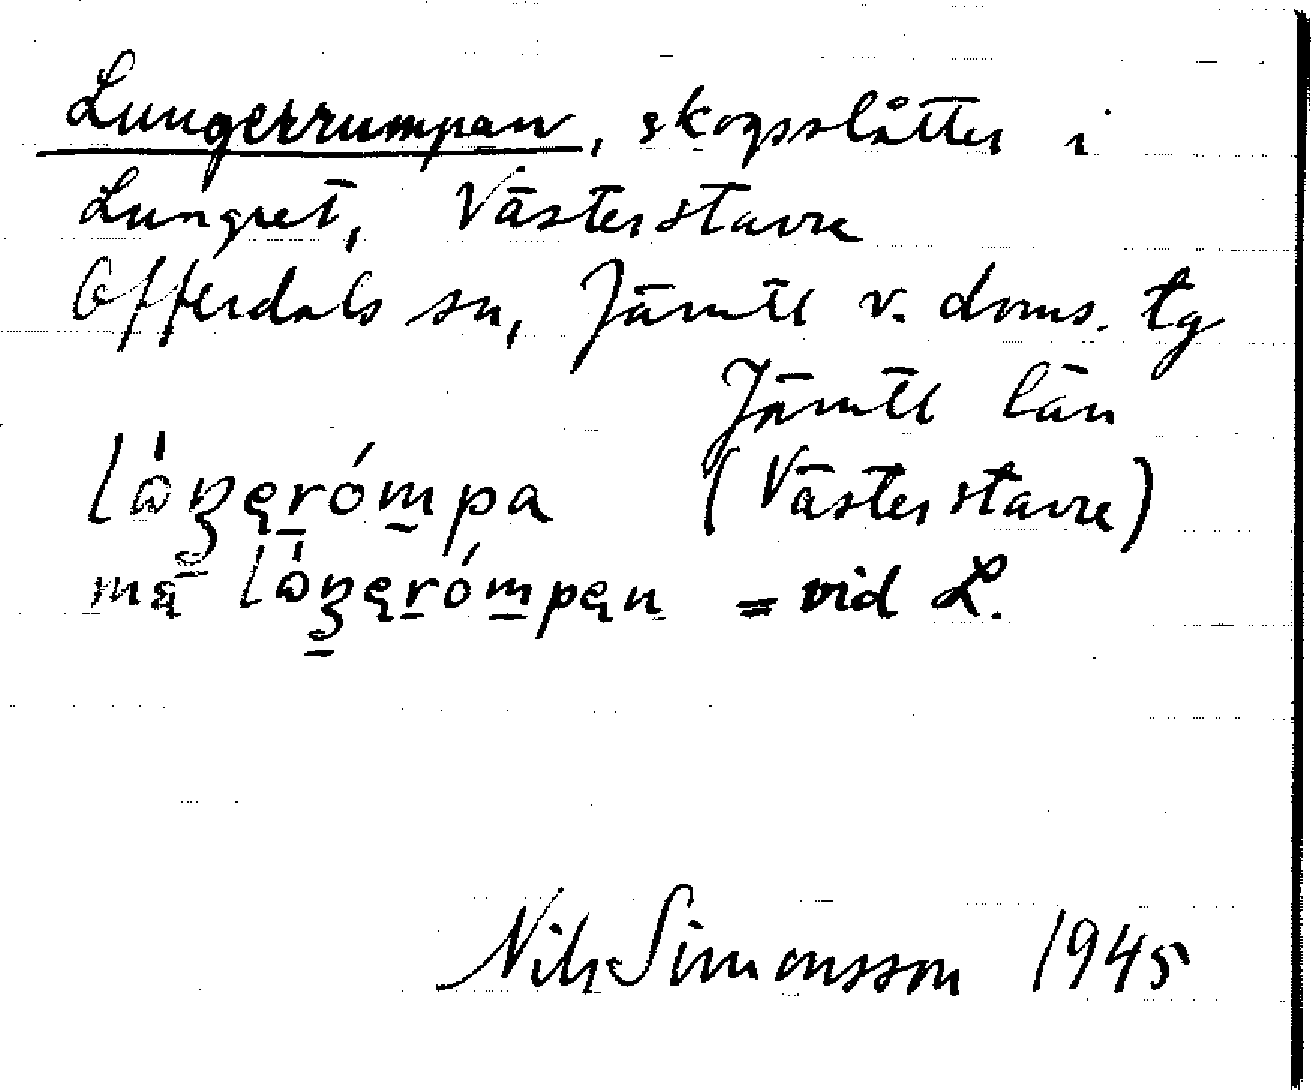 Lungerrumpan, skogsslåtter i
Lungret, Västerstavre
Offerdals sn, Jämtl v. doms. tg
Jämtl län
(Västerstavre)
= vid L.
Nils Simonsson 1945